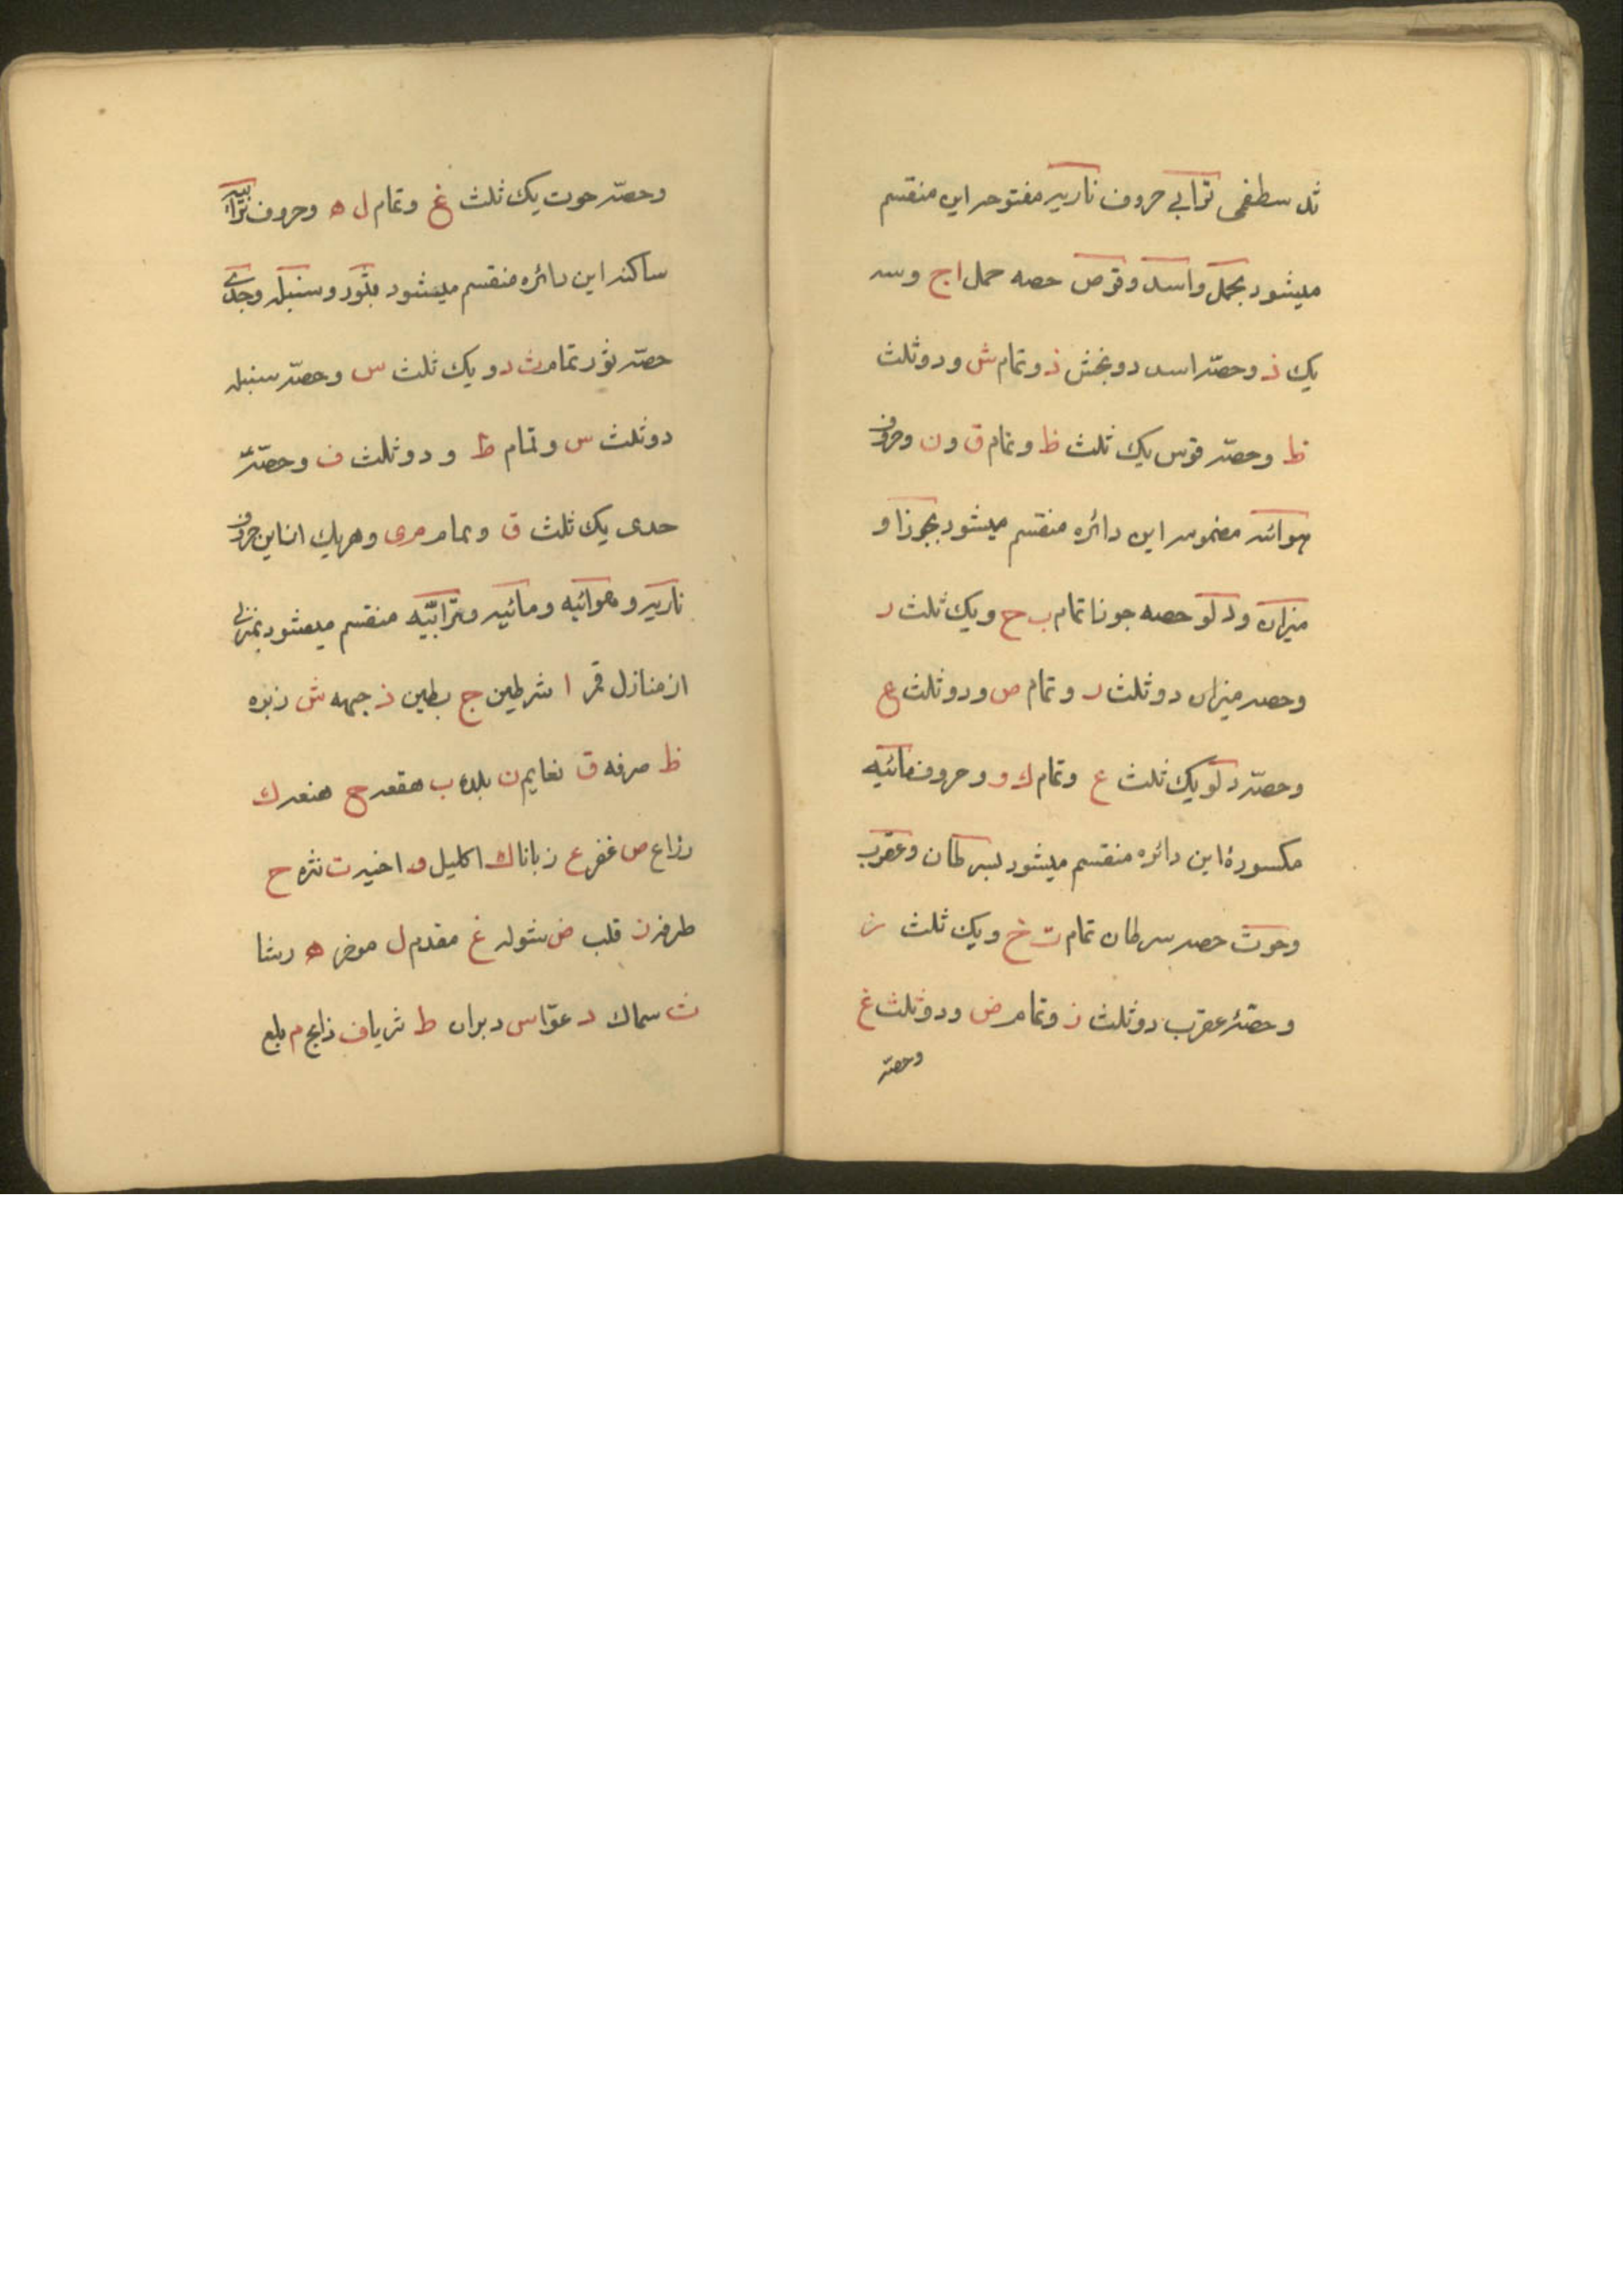 ثد سطفمی ترابی حروف ناریه مفتوحه این منقسم
میشود بحمل و اسد و قوص حصه حمل ا ج و سه
یک ذ و حصّه اسد دو بخش ذ و تمام ش و دو ثلث
ظ و حصّه قوس یک ثلث ظ و تمام ق و ن و حروف
هوائیه مضمومه این دائره منقسم میشود بجوزا و
میزان و دلو حصه جوزا تمام ب ح و یک ثلث ر
و حصه میزان دو ثلث ر و تمام ص و دو ثلث ع
و حصّه دلو یک ثلث ع و تمام ك و و حروف مائیّه
مکسورهٔ این دائره منقسم میشود بسرطان و عقرب
و حوت حصه سرطان تمام ت خ و یک ثلث ز
و حصّهٔ عقرب دو ثلث ز و تمام ض و دو ثلث غ
و حصّه
و حصّه حوت یک ثلث غ و تمام ل ه و حروف ترابیه
ساکنه این دائره منقسم میشود بثور و سنبله و جدی
حصّه ثور تمام ث د و یک ثلث س و حصّه سنبله
دو ثلث س و تمام ط و دو ثلث ف و حصّهٔ
جدی یک ثلث ق و تمام م ی و هریك از این حروف
ناریه و هوائیه و مائیه و ترابیّه منقسم میشود بمنزلی
از منازل قمر ا شرطین ج بطین ذ جبهه ش زبره
ظ صرفه ق نعایم ن بلده ب هقعه ح هنعه ر
ذراع ص غفر ع زبانا ك اکلیل و اخیر ت نثره خ
طرفه ز قلب ض شوله غ مقدم ل موخر ه رشا
ث سماك د عوّا س دبران ط ثریا ف ذابح م بلع